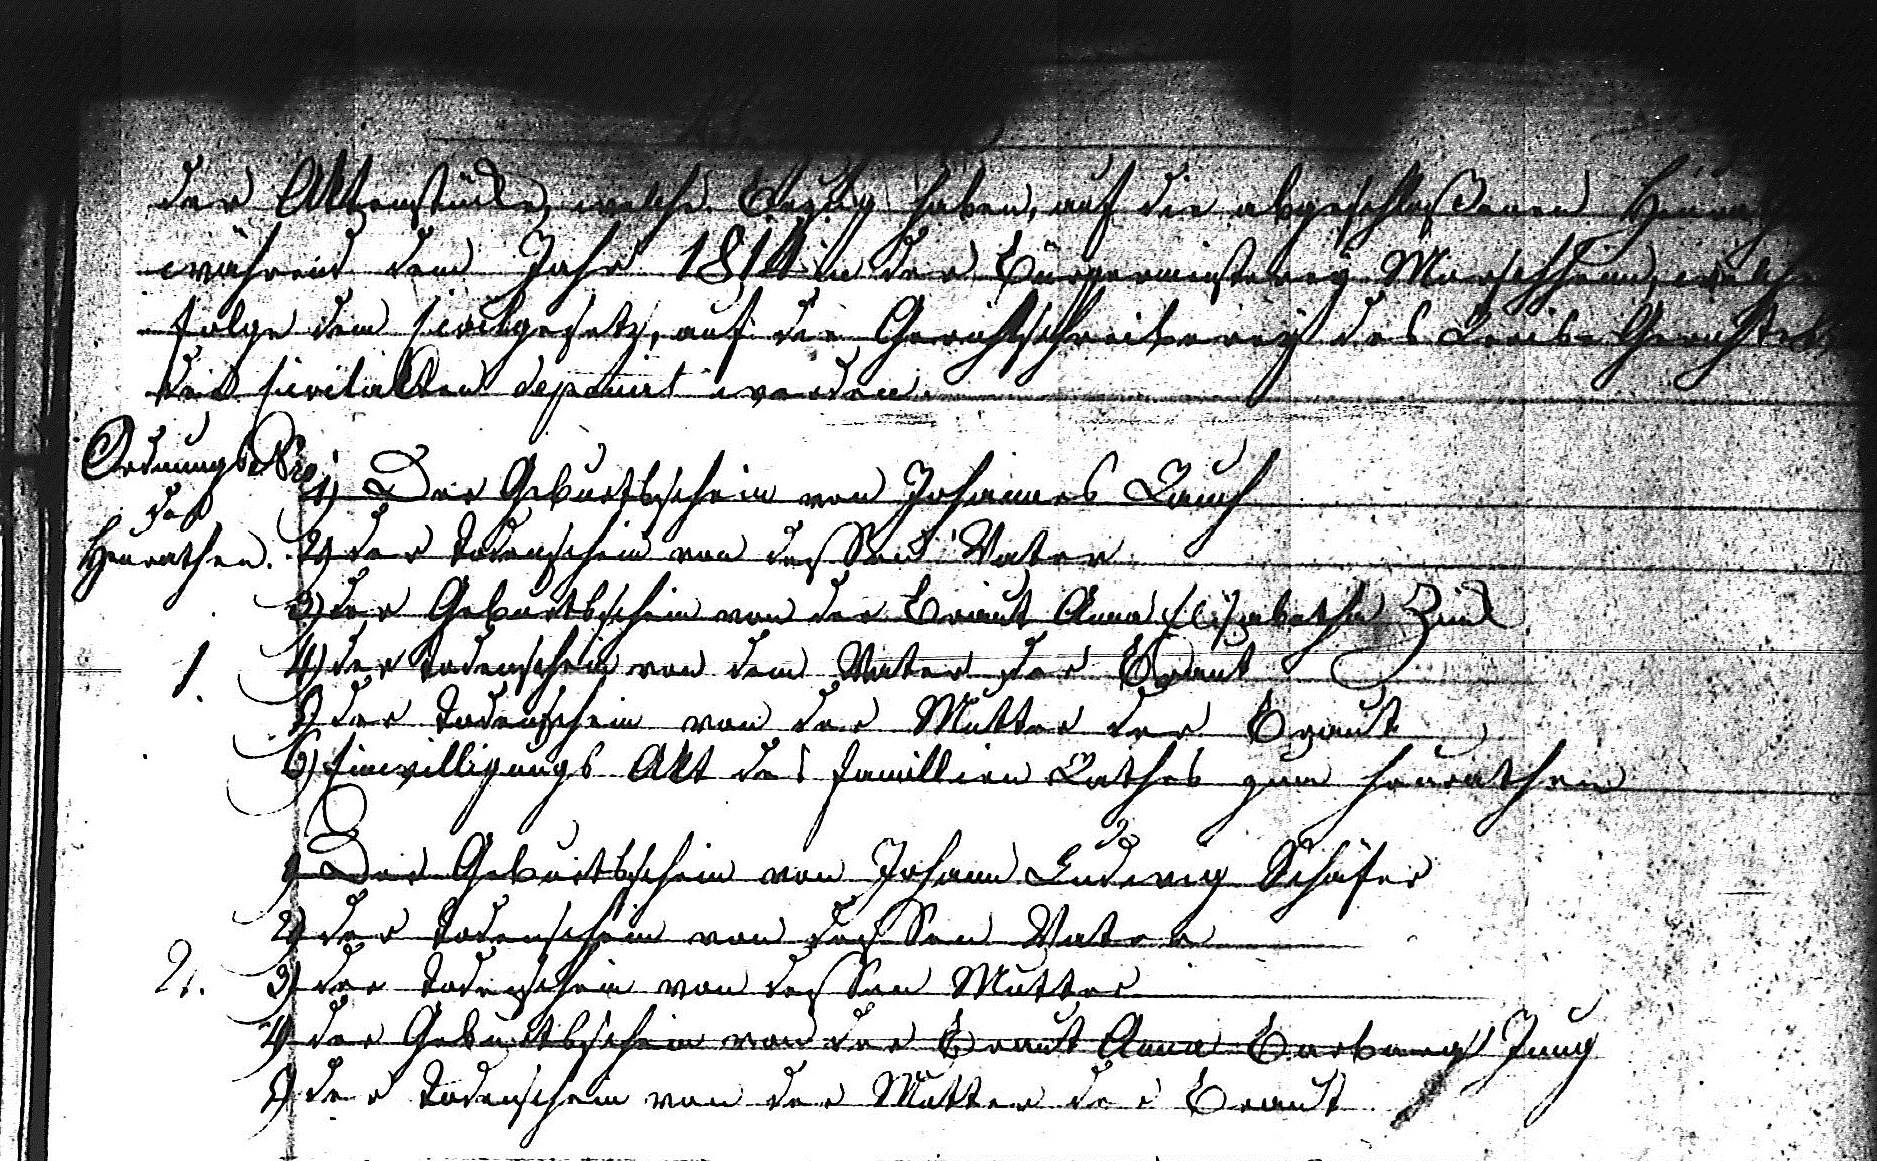 der Aktenstücke, welche Bezug haben, auf die abgeschloßenen
während dem Jahr in der Bürgermeisterey Morschheim, welche
folge dem Civilgesetz, auf die Gerichtschreiberey des
den Civilakten deponirt werden.
Ordnungs Nro
der
Heurathen.
1.
1) Der Geburtsschein von Johannes Rauch
2) der Todenschein von dessen Vater
3) der Geburtsschein von der Braut Anna Elisabetha
4) der Todenschein von dem Vater der Braut
5) der Todenschein von der Mutter der Braut
6) Einwilligungs Akt des Famillien Rathes zum heurathen
2.
1) Der Geburtsschein von Johann Ludwig Schäfer
2) der Todenschein von dessen Vater
3) der Todenschein von dessen Mutter
4) der Geburtsschein von der Braut Anna Barbara Jung
5) der Todenschein von der Mutter der Braut